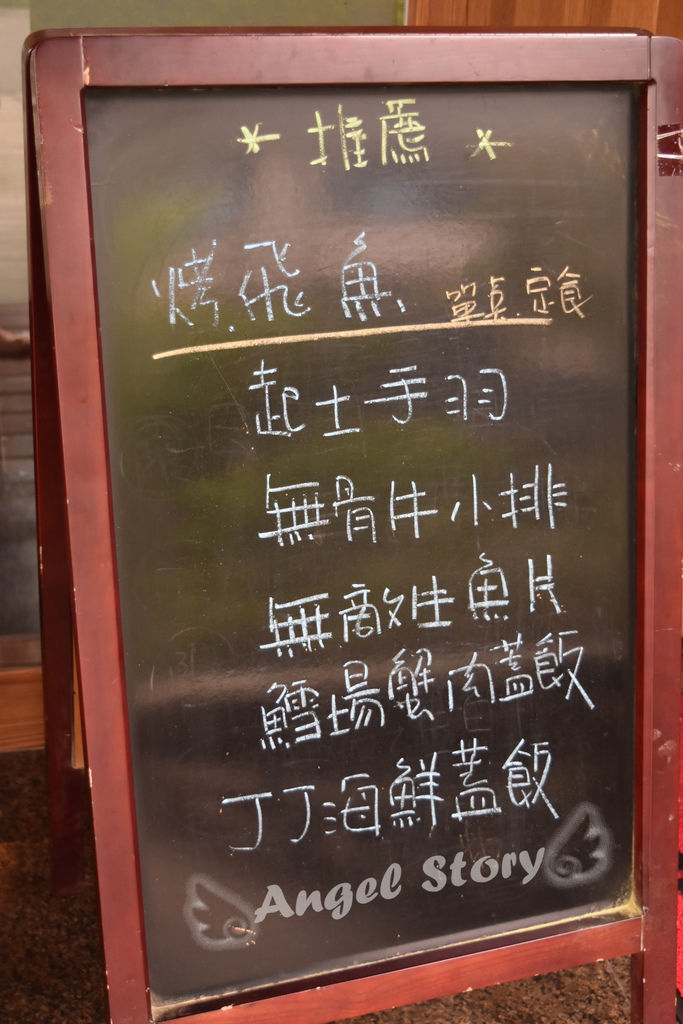 * 推薦 *
烤飛魚 單點.定食
起士手羽
無骨牛小排
無敵生魚片
鱈場蟹肉蓋飯
丁丁海鮮蓋飯
Angel Story